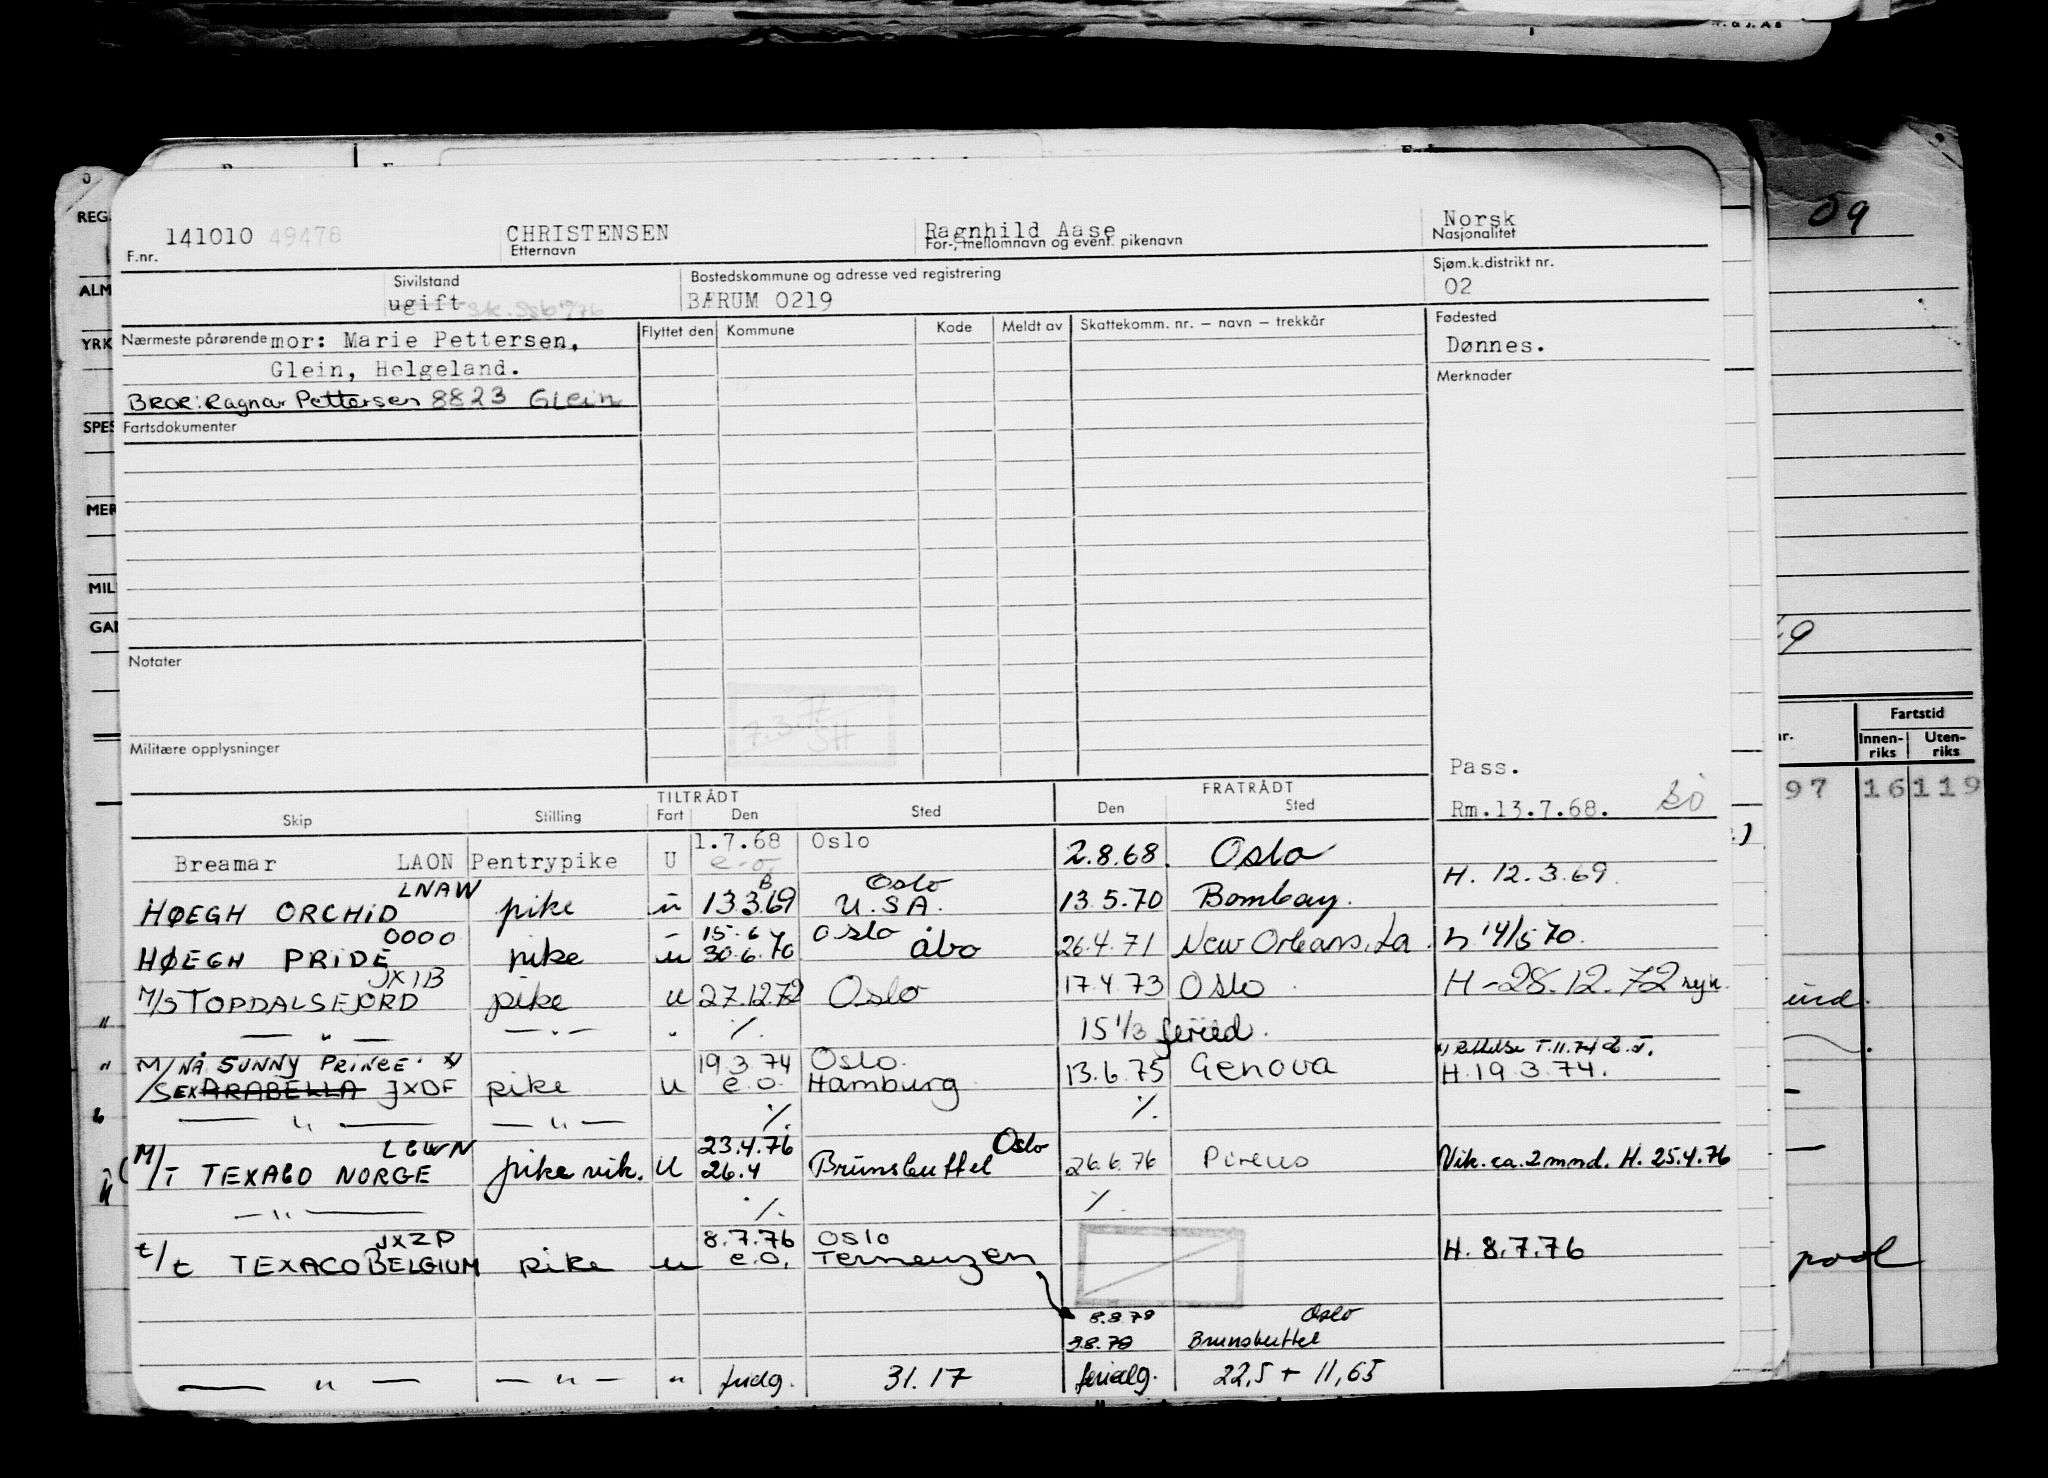 141010 49478 CHRISTENSEN Ragnhild Aase Norsk
F.nr. Etternavn For-, mellomnavn og event. pikenavn Nasjonalitet
Sivilstand Bostedskommune og adresse ved registrering Sjøm.k.distrikt nr.
ugift BÆRUM 0219 02
Nærmeste pårørende mor: Marie Pettersen, Flyttet den Kommune Kode Meldt av Skattekomm. nr. – navn – trekkår Fødested
Glein, Helgeland. Dønnes.
BROR: Ragnar Pettersen 8823 Glein Merknader
Fartsdokumenter
Notater
7.3.77
SH
Militære opplysninger
Pass.
TILTRÅDT FRATRÅDT
Skip Stilling Fart Den Sted Den Sted Rm.13.7.68.
1.7.68 Oslo
Breamar LAON Pentrypike U e.o. 2.8.68. Oslo
LNAW Oslo H. 12.3.69.
HØEGH ORCHID pike u 13.3.69 U.S.A. 13.5.70 Bombay.
OOOO 15.6 Oslo
HØEGH PRIDE pike u 30.6.70 åbo 26.4.71 New Orleans, La. h 14/5 70.
JXIB
M/S TOPDALSFJORD pike u 27.12.72 Oslo 17.4.73 Oslo H-28.12.72
— " — — " — " ./. 15 1/3 feried.
M/ NÅ SUNNY PRINCE. x) 19.3.74 Oslo. x) Rettelse T.11.74
/S EX ARABELLA JXDF pike u e.o. Hamburg 13.6.75 Genova H.19.3.74.
— " — — " — ./. ./.
LGWN 23.4.76 Oslo
M/T TEXACO NORGE pike vik. u 26.4 Brunsbuttel 26.6.76 Pireus Vik. ca. 2 mnd. H. 25.4.76
— " — ./. ./.
JXZP 8.7.76 Oslo
t/t TEXACO BELGIUM pike u e.o. Terneuzen H. 8.7.76
8.8.78 Oslo
9.8.78 Brunsbuttel
— " — — " — " fridg. 31.17 feriedg. 22,5 + 11,65
REG.
ALM
YRK
SPES
MER
MIL
09
Fartstid
Innen-
riks
Uten-
riks
97 16 119
ind.
pool